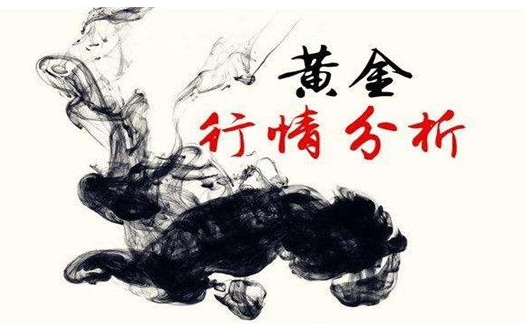 黄金
行情分析